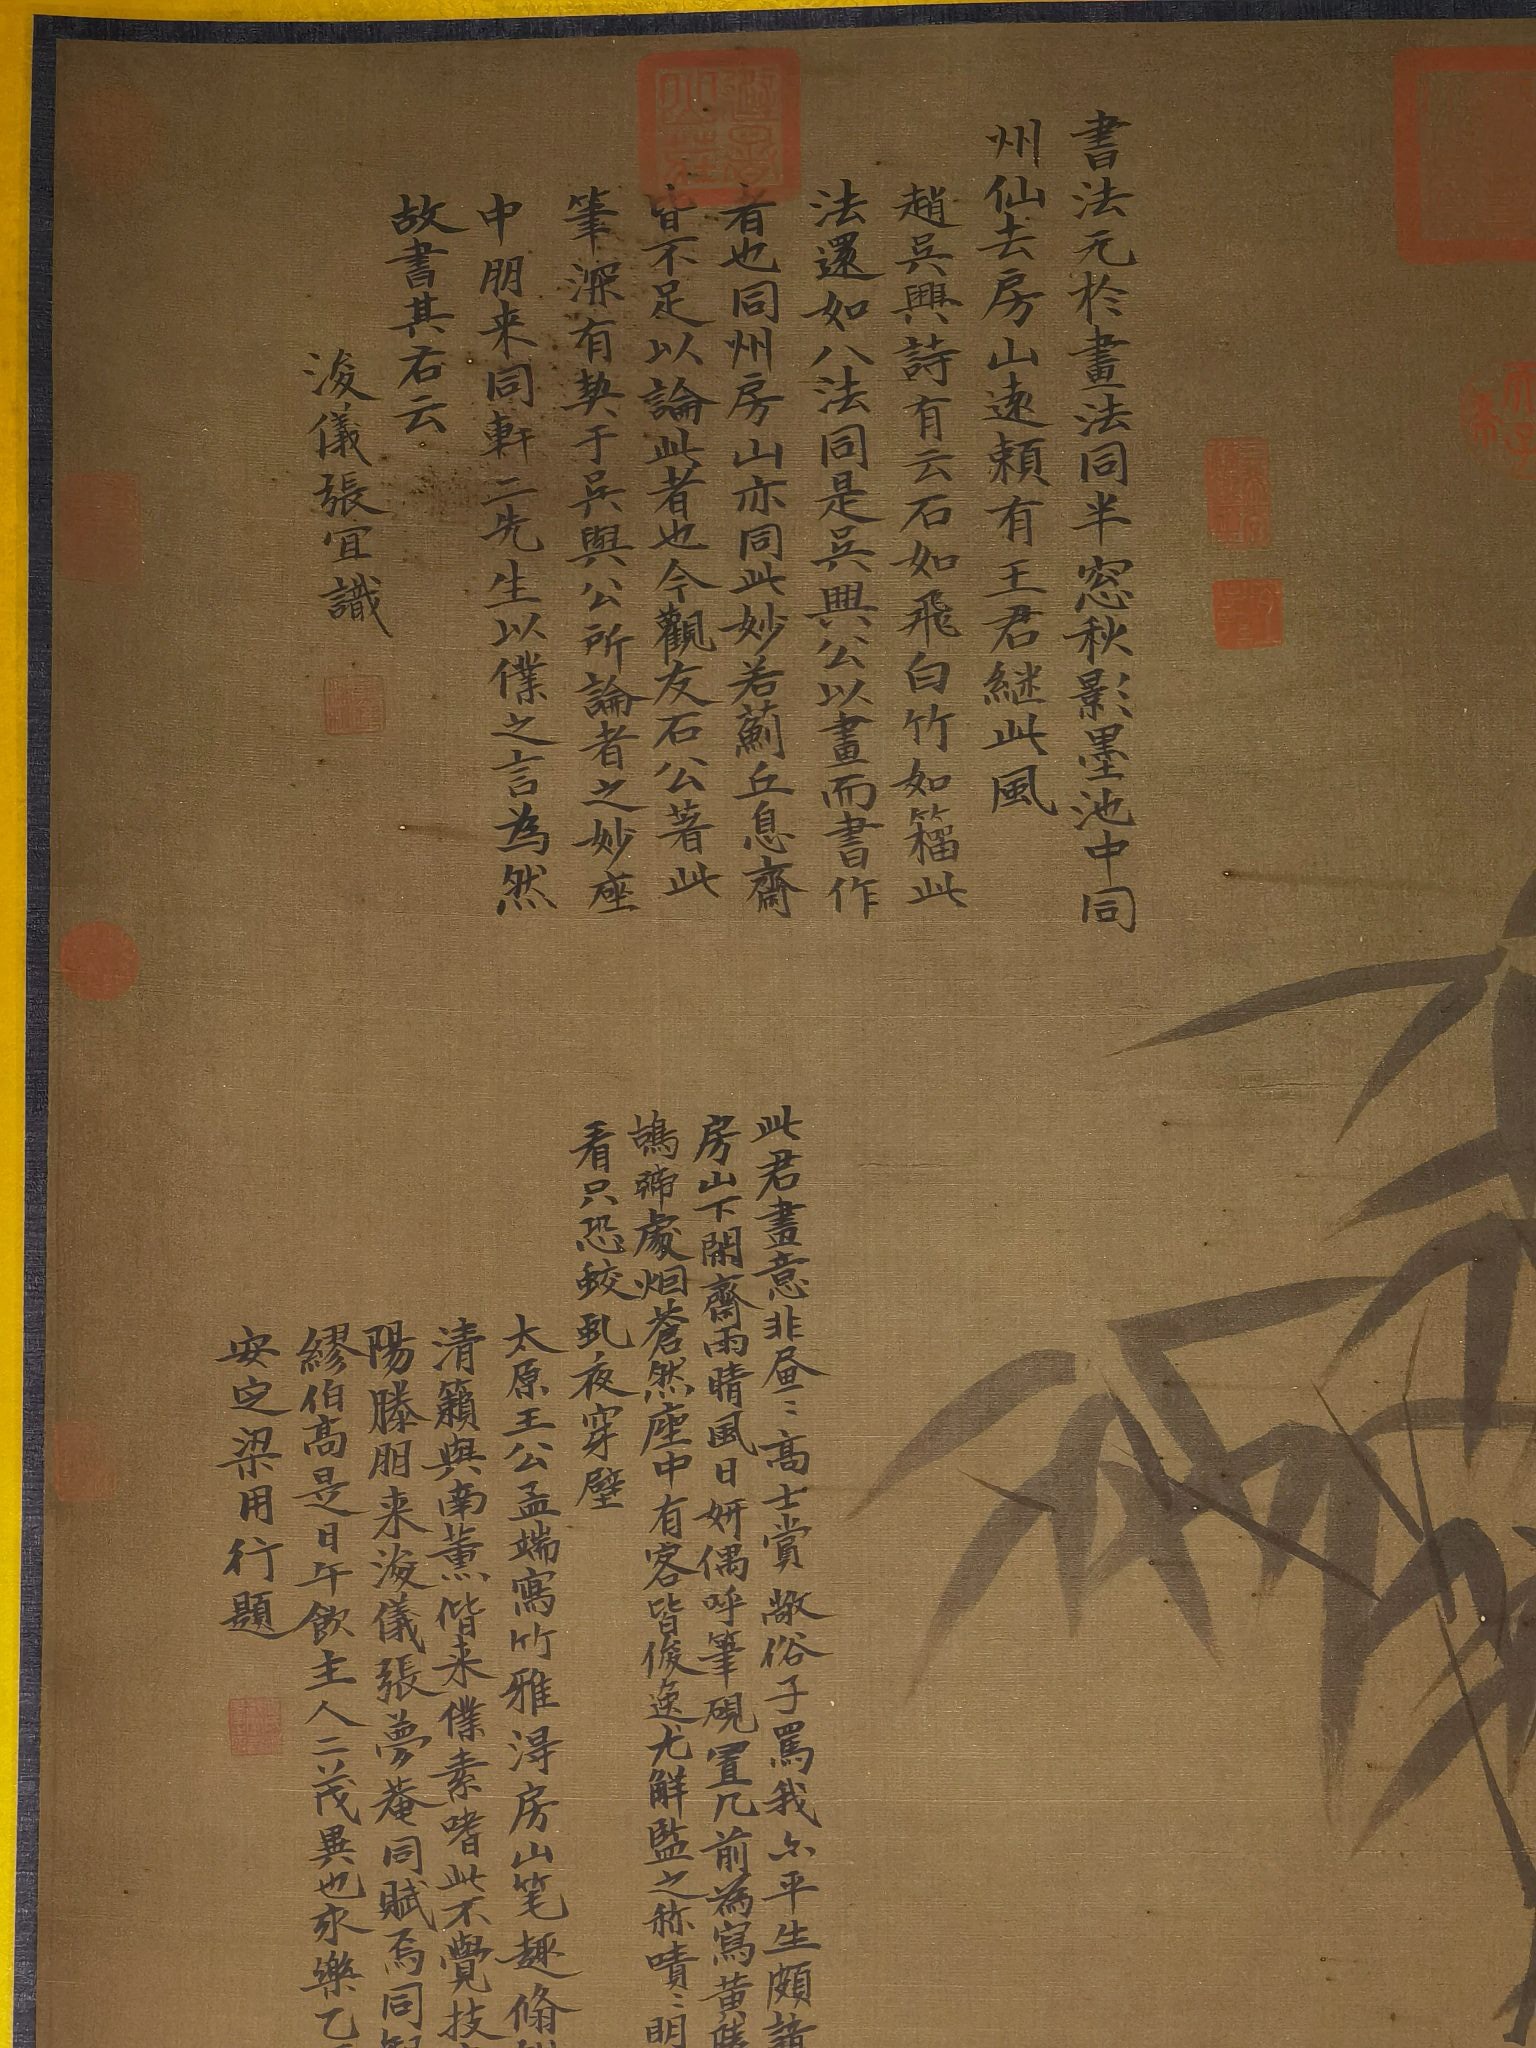 書法元於畫法同半窓秋影墨池中同
州仙去房山遠頼有王君繼此風
趙吳興詩有云石如飛白竹如籀此
法還如八法同是吳興公以畫而書作
者也同州房山亦同此妙若薊丘息齋
皆不足以論此者也今觀友石公著此
筆深有契于吳興公所論者之妙座
中朋来同軒二先生以僕之言為然
故書其右云
浚儀張宜識
此君畫意非昼〻高士賞敵俗子罵我亦平生頗
房山下閑齋雨晴風日妍偶呼筆硯置几前為寫黄陵
鴣啼處烟蒼然座中有客皆俊逸尤解監之称嘖〻明
看只恐蛟虬夜穿壁
太原王公孟端寫竹雅淂房山笔趣脩
清籟與南薰偕来僕素嗜此不覺技
陽滕用来浚儀張夢菴同賦焉同
繆伯高是日午飲主人二茂異也永樂乙
安定梁用行題